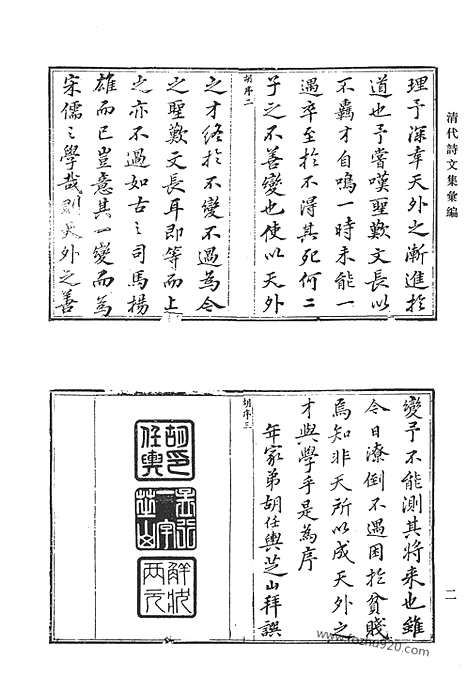 清代詩文集彙編
理予深幸天外之漸進於
道也予嘗嘆聖歎文長以
不羈才自鳴一時未能一
遇卒至於不得其死何二
子之不善變也使以天外
胡序二
之才終於不變不過為今
之聖歎文長耳即等而上
之亦不過如古之司馬揚
雄而已豈意其一變而為
宋儒之學哉則天外之善
二
變予不能測其將来也雖
今日潦倒不遇困於貧賤
焉知非天所以成天外之
才與學乎是為序
年家弟胡任輿芝山拜譔
胡序三
胡印任輿
一字芝山
解狀兩元
www.fozhu920.com